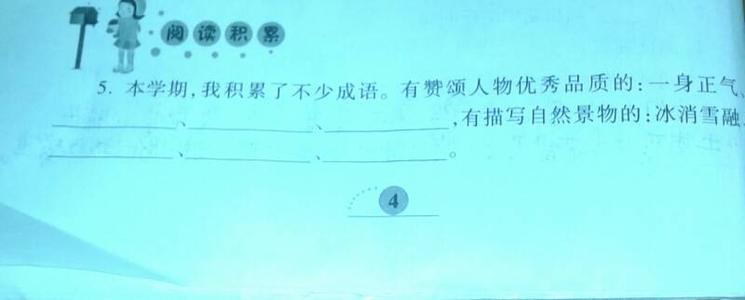 阅读积累
5. 本学期,我积累了不少成语。有赞颂人物优秀品质的:一身正气、
、、,有描写自然景物的:冰消雪融、
、、。
4